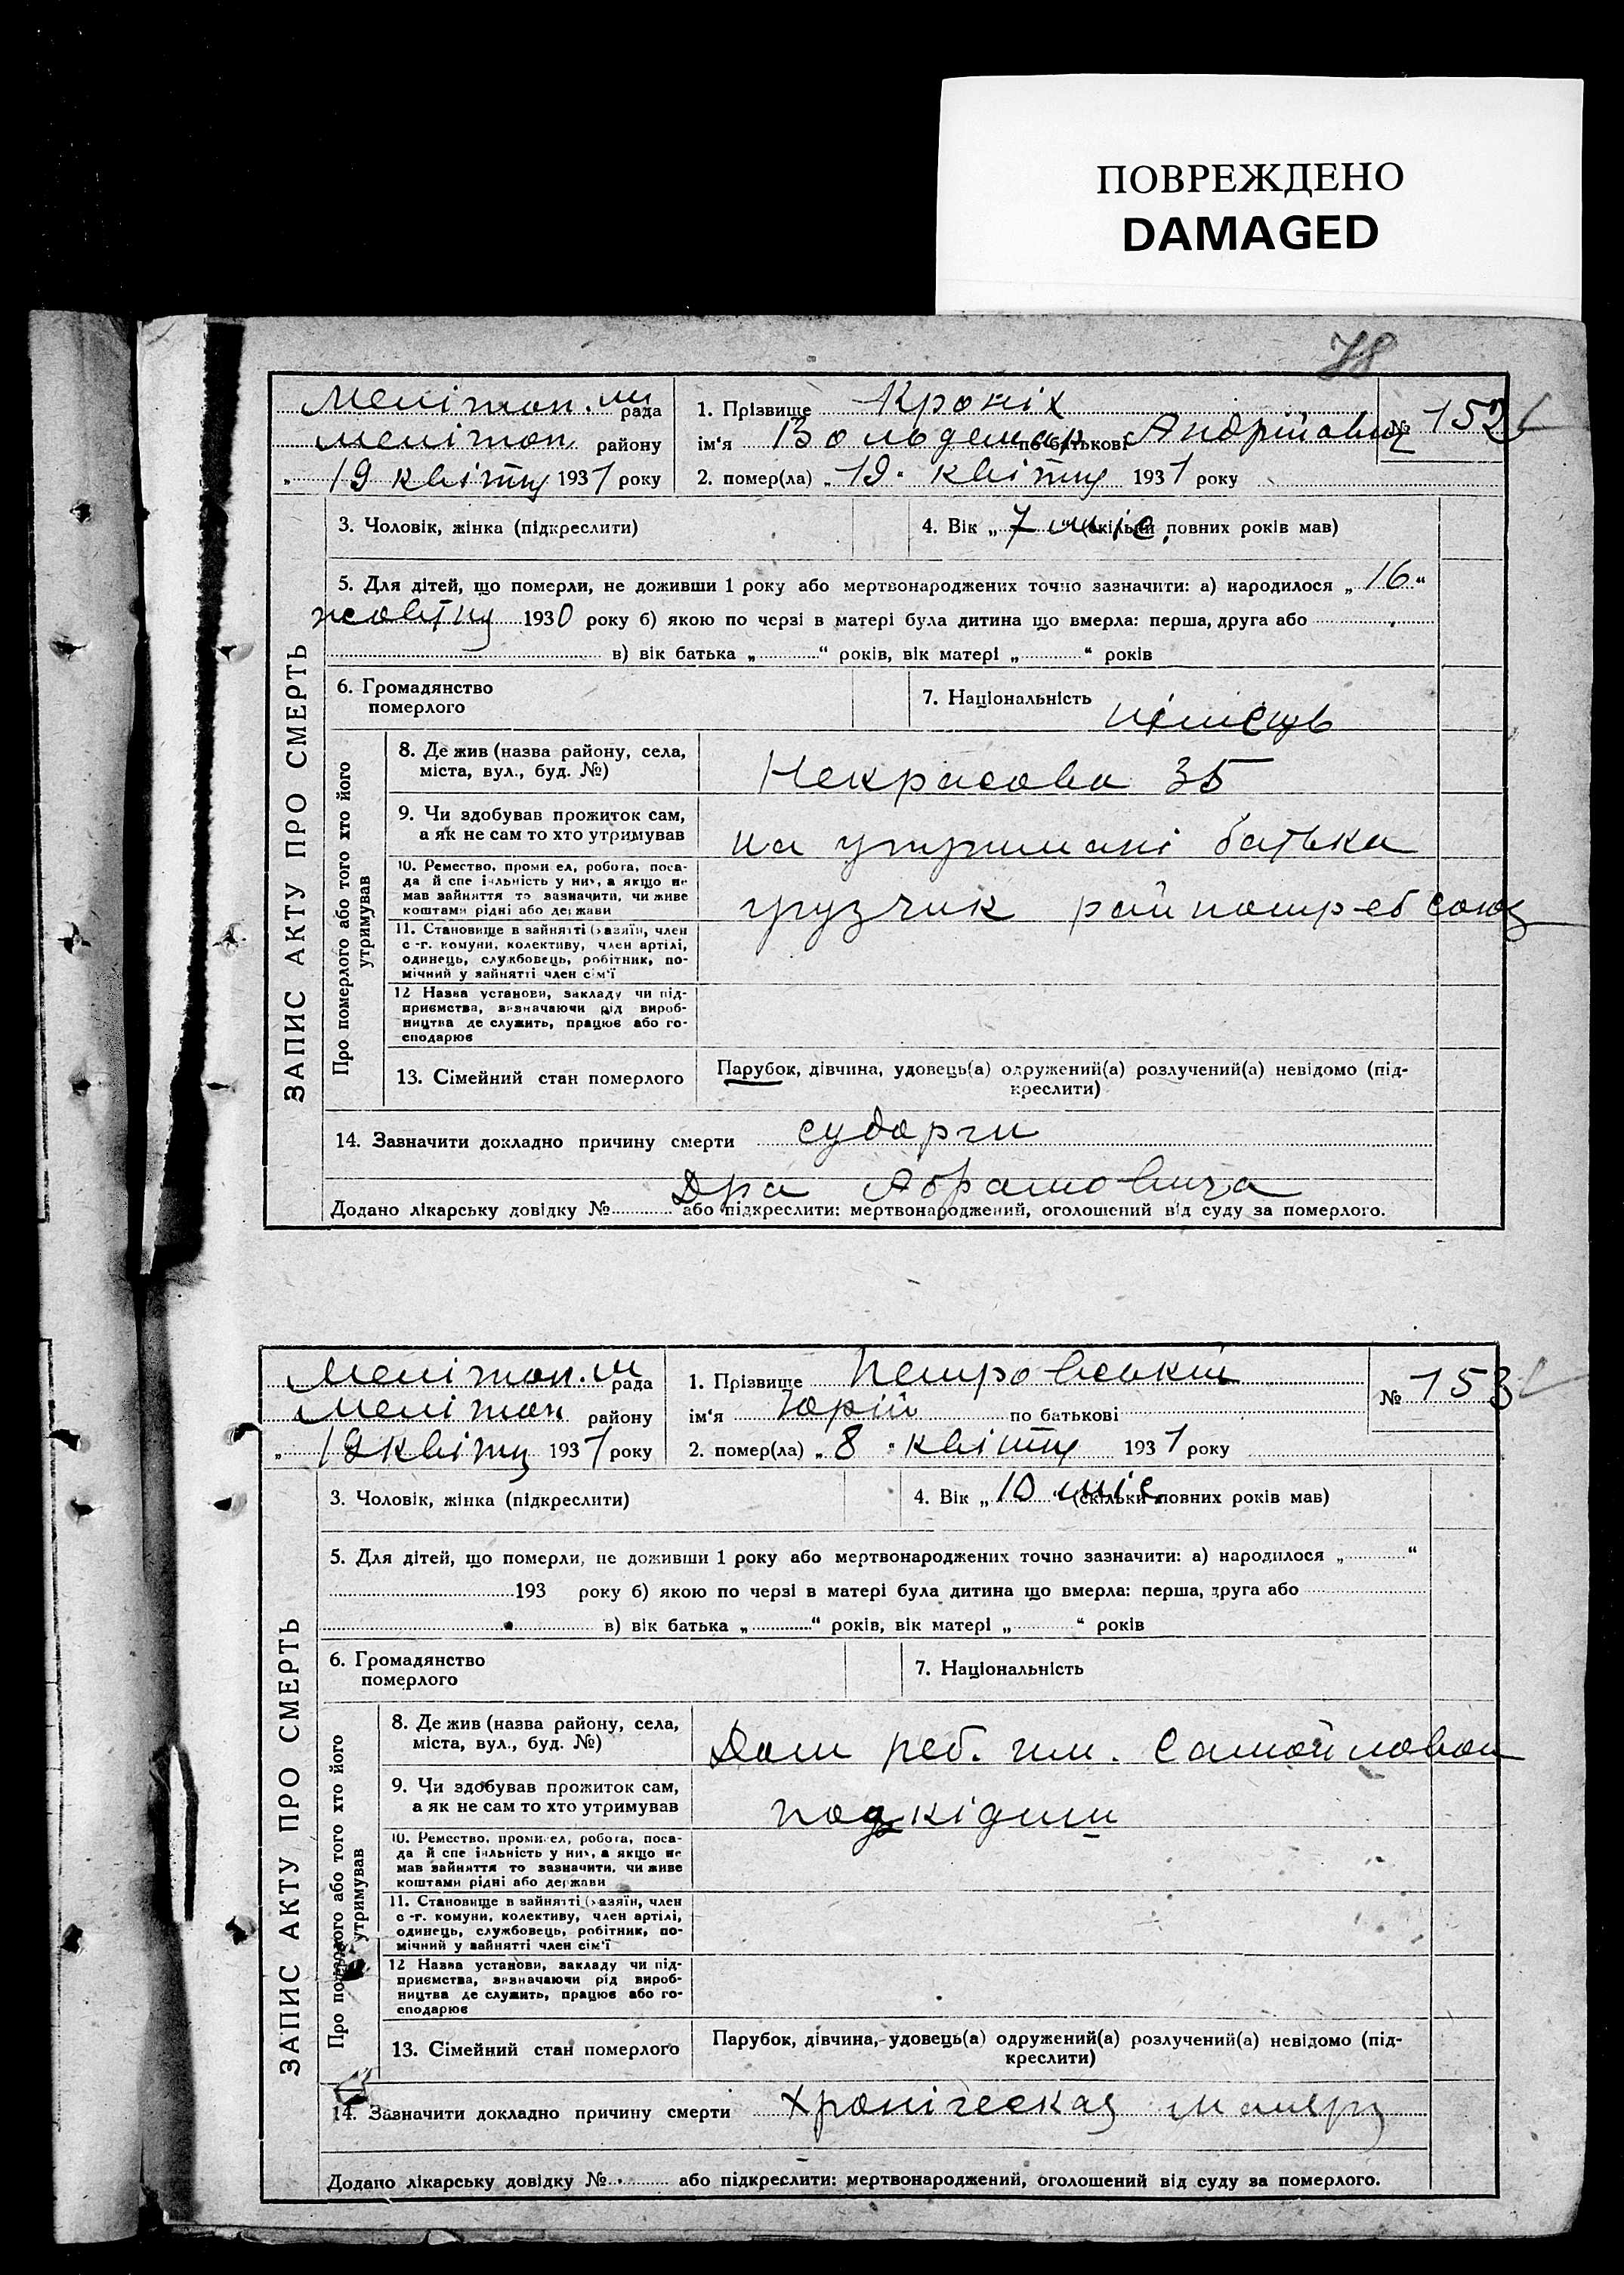 ПОВРЕЖДЕНО
DAMAGED
78
Меліто​п. м рада
Мелітоп районy
„ 19 квітн 1931 року
1. Прізвище Кроніх
ім‘я Вольдемар по батькові Андрійович
№ 152
2. помер(ла) „ 19 “ квітн 1931 року
ЗАПИС АКТУ ПРО СМЕРТЬ
3. Чоловік, жінка (підкреслити)
4. Вік „ 7 міс. “ (скільки повних років мав)
5. Для дітей, що померли, не доживши 1 року або мертвонароджених точно зазначити: а) народилося „ 16 “
жовтн 1930 року б) якою по черзі в матері була дитина що вмерла: перша, друга або
в) вік батька „ “ років, вік матері „ “ років
6. Громадянство
померлого
7. Національність німець
Про померлого або того хто його
утримував
8. Де жив (назва району, села,
міста, вул., буд. №)
Некрасова 35
9. Чи здобував прожиток сам,
а як не сам то хто утримував
на утримані батька
10. Ремество, проми ел, робота, поса-
да й спе і льність у них, а якщо не
мав зайняття то зазначити, чи живе
коштами рідні або держави
грузчик райпотребсоюз
11. Становище в зайнятті (хазяїн, член
с -г. комуни, колективу, член артілі,
одинець, службовець, робітник, по-
мічний у зайнятті член сім‘ї
12 Назва установи, закладу чи під-
приємства, зазначаючи рід вироб-
ництва де служить, працює або го-
сподарює
13. Сімейний стан померлого
Парубок, дівчина, удовець(а) одружений(а) розлучений(а) невідомо (під-
креслити)
14. Зазначити докладно причину смерти судорги
Дра Абрамовича
Додано лікарську довідку № або підкреслити: мертвонароджений, оголошений від суду за померлого.
Мелітоп. м рада
Мелітоп району
„ 12 квітн 1931 року
1. Прізвище Петровський
ім‘я Юрій по батькові
№ 153
2. помер(ла) „ 8 “ квітн 1931 року
ЗАПИС АКТУ ПРО СМЕРТЬ
3. Чоловік, жінка (підкреслити)
4. Вік „ 10 міс. “ (скільки повних років мав)
5. Для дітей, що померли, не доживши 1 року або мертвонароджених точно зазначити: а) народилося „ “
193 року б) якою по черзі в матері була дитина що вмерла: перша, друга або
в) вік батька „ “ років, вік матері „ “ років
6. Громадянство
померлого
7. Національність
Про померлого або того хто його
утримував
8. Де жив (назва району, села,
міста, вул., буд. №)
Дом реб. им. Самойловой
9. Чи здобував прожиток сам,
а як не сам то хто утримував
подкідиш
10. Ремество, проми ел, робота, поса-
да й спе іяльність у них, а якщо не
мав зайняття то зазначити, чи живе
коштами рідні або держави
11. Становище в зайнятті (хазяїн, член
с -г. комуни, колективу, член артілі,
одинець, службовець, робітник, по-
мічний у зайнятті член сім‘ї
12 Назва установи, закладу чи під-
приємства, зазначаючи рід вироб-
ництва де служить, працює або го-
сподарює
13. Сімейний стан померлого
Парубок, дівчина, удовець(а) одружений(а) розлучений(а) невідомо (під-
креслити)
14. Зазначити докладно причину смерти хроніческая
Додано лікарську довідку № або підкреслити: мертвонароджений, оголошений від суду за померлого.